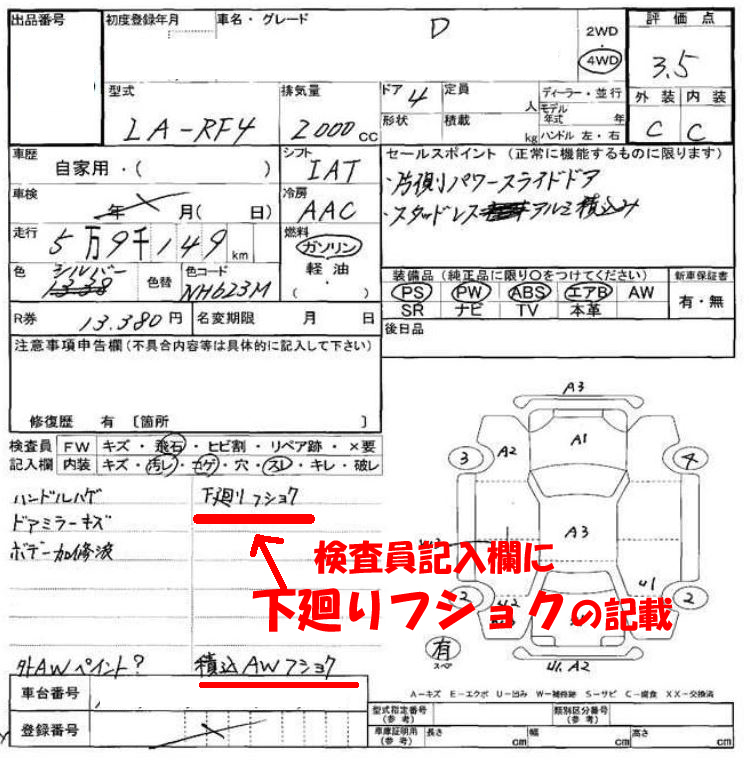 出品番号
初度登録年月
車名・グレード
D
2WD
・
4WD
評価点
3.5
型式
LA-RF4
排気量
2000cc
ドア 4
定員
人
ディーラー・並行
モデル年式 年
形状
積載
kg
ハンドル 左・右
外装 内装
C C
車歴
自家用・( )
シフト
IAT
セールスポイント (正常に機能するものに限ります)
・片側パワースライドドア
・スタッドレス アルミ積込み
車検
年 月( 日)
冷房
AAC
走行
5万9千149km
燃料
ガソリン
軽油
( )
色
シルバー
色替
色コード
NH623M
装備品 (純正品に限り○をつけてください)
新車保証書
PS PW ABS エアB AW
有・無
SR ナビ TV 本革
R券
13.380円
名変期限 月 日
後日品
注意事項申告欄(不具合内容等は具体的に記入して下さい)
修復歴 有 〔箇所 〕
検査員記入欄
FW キズ・飛石・ヒビ割・リペア跡・×要
内装 キズ・汚レ・コゲ・穴・スレ・キレ・破レ
ハンドルハゲ
下廻りフショク
ドアミラーキズ
ボデー加修波
検査員記入欄に
下廻りフショクの記載
外AWペイント?
積込AWフショク
A3
A2
A1
3
4
A3
U1
2
2
有
スペア
U1. A2
A-キズ E-エクボ U-凹み W-補修跡 S-サビ C-腐食 XX-交換済
車台番号
登録番号
型式指定番号
(参考)
類別区分番号
(参考)
車庫証明用
(参考)
長さ cm
幅 cm
高さ cm